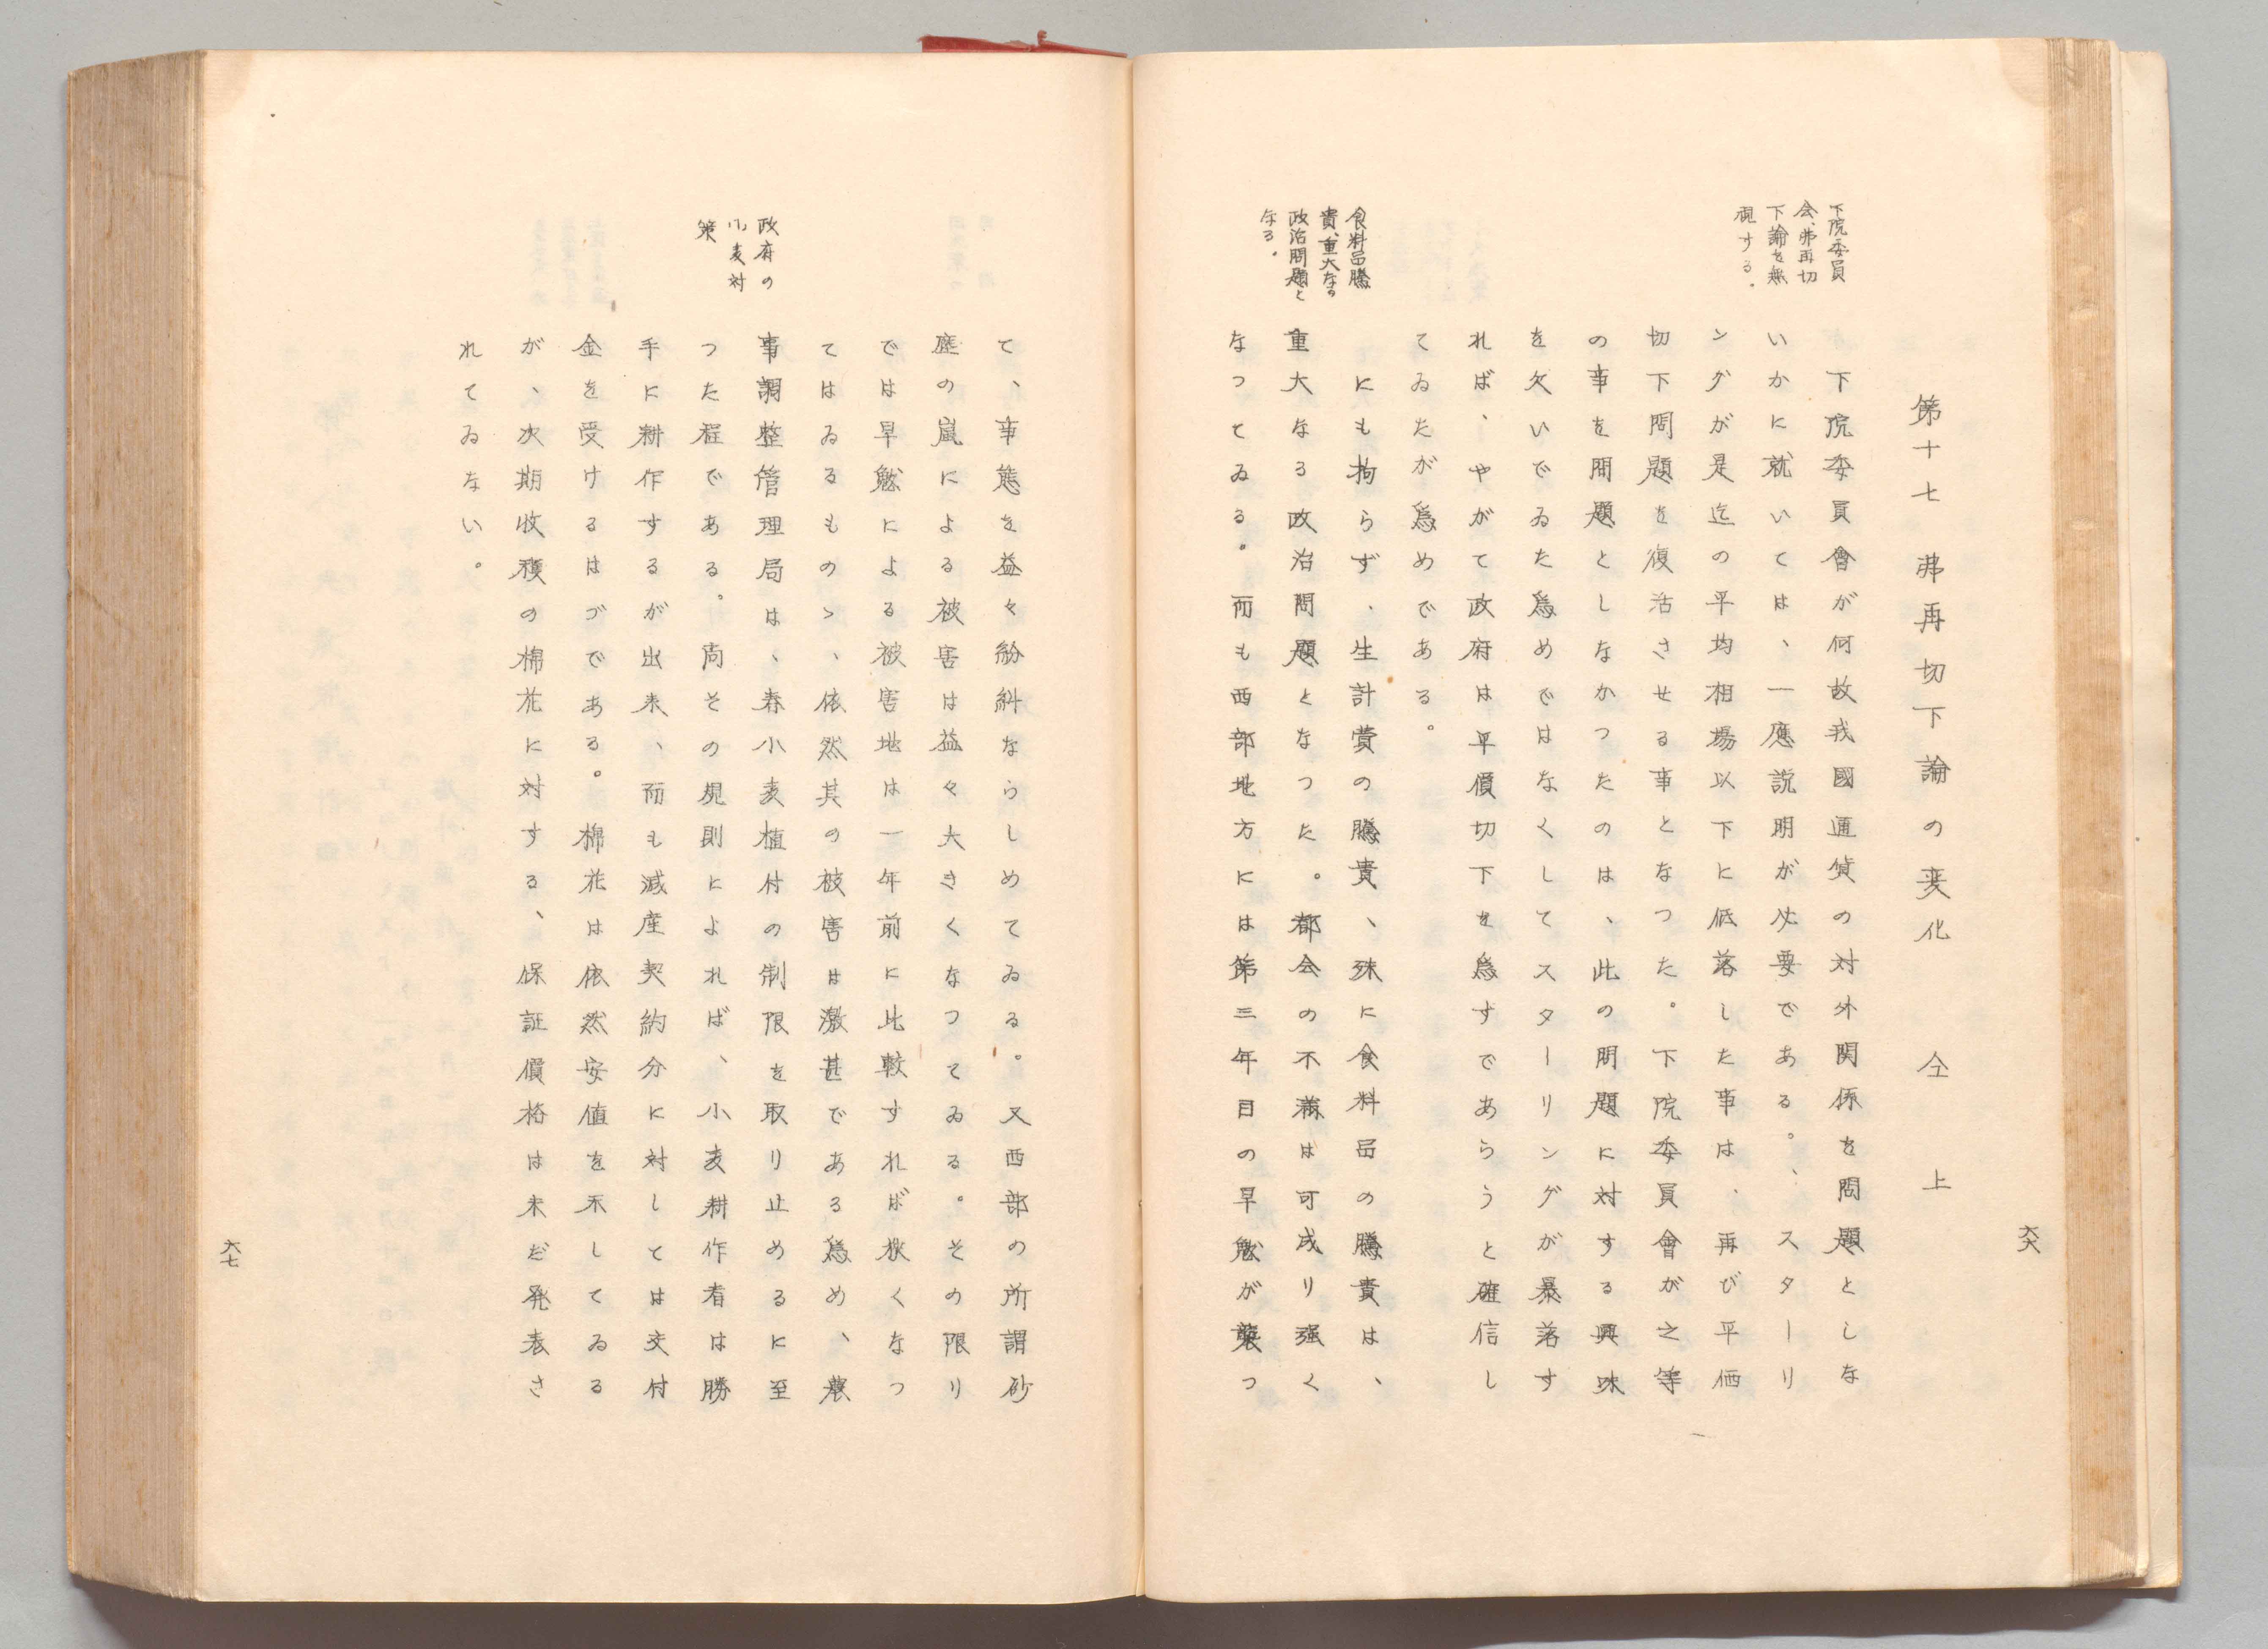 六六
第十七 弗再切下論の変化 仝上
下院委員
会、弗再切
下論を無
視する。
下院委員會が何故我國通貨の対外関係を問題としな
いかに就いては、一應説明が必要である。、スターリ
ングが是迄の平均相場以下に低落した事は、再び平価
切下問題を復活させる事となつた。下院委員會が之等
の事を問題としなかつたのは、此の問題に対する興味
を欠いでゐた為めではなくしてスターリングが暴落す
れば、やがて政府は平價切下を為すであらうと確信し
てゐたが為めである。
食料品騰
貴、重大なる
政治問題と
なる。
にも拘らず、生計費の騰貴、殊に食料品の騰貴は、
重大なる政治問題となつた。都会の不満は可成り强く
なつてゐる。而も西部地方には第三年目の旱魃が襲つ
て、事態を益々紛糾ならしめてゐる。又西部の所謂砂
塵の嵐による被害は益々大きくなつてゐる。その限り
では旱魃による被害地は一年前に比較すれば狭くなつ
てはゐるものゝ、依然其の被害は激甚である為め、農
政府の
小麦対
策
事調整管理局は、春小麦植付の制限を取り止めるに至
つた程である。尚その規則によれば、小麦耕作者は勝
手に耕作するが出来、而も減産契約分に対しては交付
金を受けるはづである。棉花は依然安値を示してゐる
が、次期收穫の棉花に対する、保証價格は未だ発表さ
れてゐない。
六七